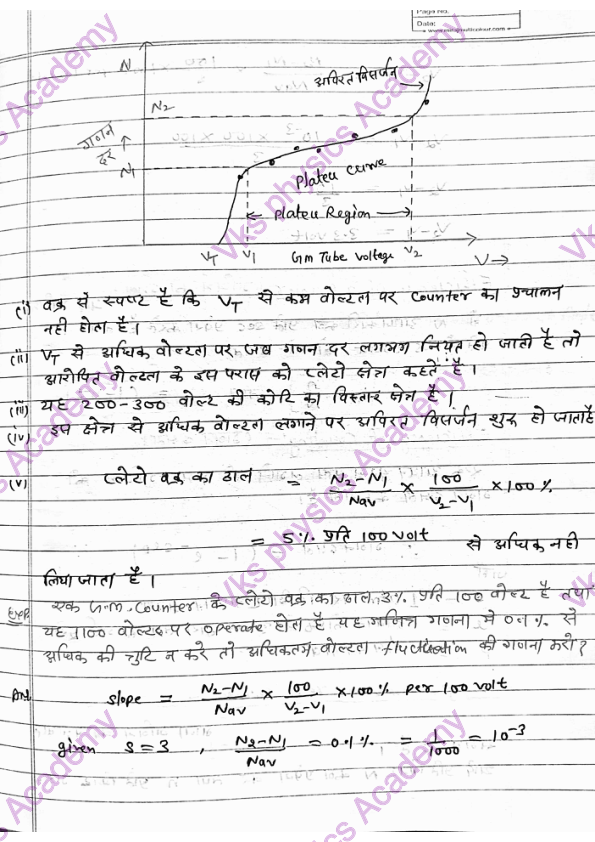 Page No.
Date:
N
N2
अविरत विसर्जन
गणन
दर
N1
Plateu Curve
Plateu Region
VT
V1
Gm Tube Voltage
V2
V→
(i) वक्र से स्पष्ट है कि VT से कम वोल्टता पर Counter का प्रचालन
नही होता है।
(ii) VT से अधिक वोल्टता पर जब गणन दर लगभग नियत हो जाती है तो
आरोपित वोल्टता के इस परास को प्लेटो क्षेत्र कहते है।
(iii) यह 200-300 वोल्ट की कोटि का विस्तार क्षेत्र है।
(iv) इस क्षेत्र से अधिक वोल्टता लगाने पर अविरत विसर्जन शुरू हो जाता है
(v) प्लेटो वक्र का ढाल = N2-N1/Nav × 100/V2-V1 ×100%
= 5% प्रति 100 Volt से अधिक नही
लिया जाता है।
Exp. एक G.m. Counter के प्लेटो वक्र का ढाल 3% प्रति 100 वोल्ट है तथा
यह 1100 वोल्ट पर operate होता है यह गणित्र गणना मे 0.1% से
अधिक की त्रुटि न करे तो अधिकतम वोल्टता fluctuation की गणना करो?
Ans. slope = N2-N1/Nav × 100/V2-V1 ×100% per 100 volt
given s=3 , N2-N1/Nav = 0.1% = 1/1000 = 10-3
Vks physics Academy